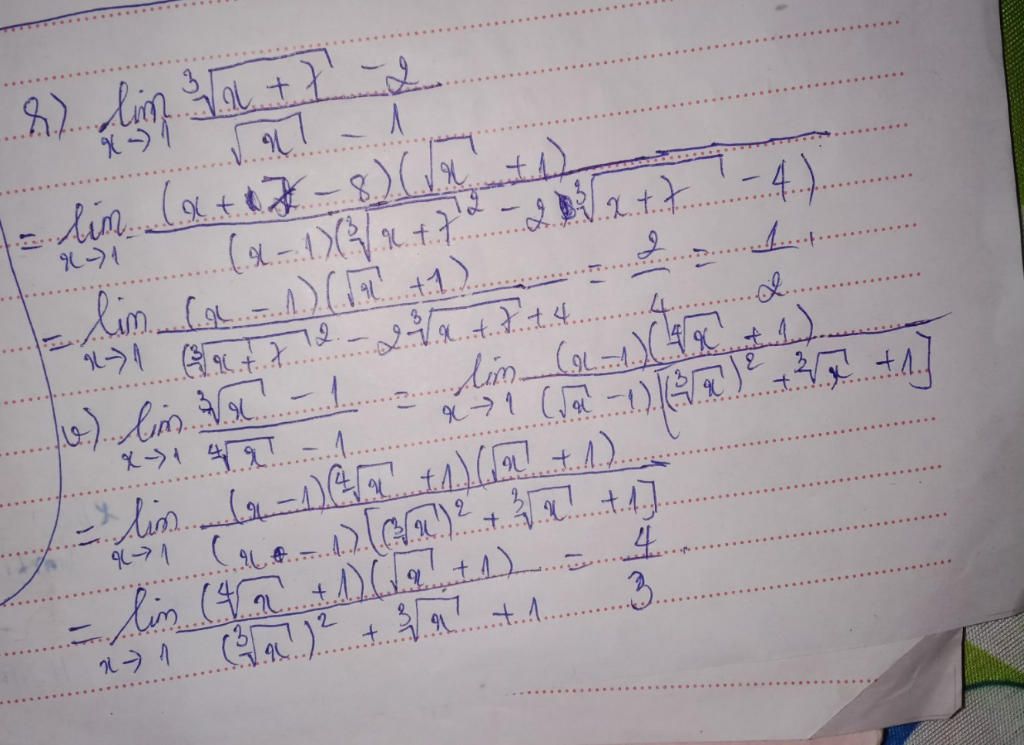 r) lim x→1 (∛(x + 7) - 2) / (√x - 1)
= lim x→1 (x + 7 - 8)(√x + 1) / (x - 1)(∛(x + 7)² - 2∛(x + 7) - 4)
= lim x→1 (x - 1)(√x + 1) / (∛(x + 7)² - 2∛(x + 7) + 4 = 2/4 = 1/2
v) lim x→1 (∛x - 1) / (∜x - 1) = lim x→1 (x - 1)(∜x + 1) / (√x - 1)[(∛x)² + ∛x + 1]
= lim x→1 (x - 1)(∜x + 1)(√x + 1) / (x - 1)[(∛x)² + ∛x + 1]
= lim x→1 (∜x + 1)(√x + 1) / (∛x)² + ∛x + 1 = 4/3